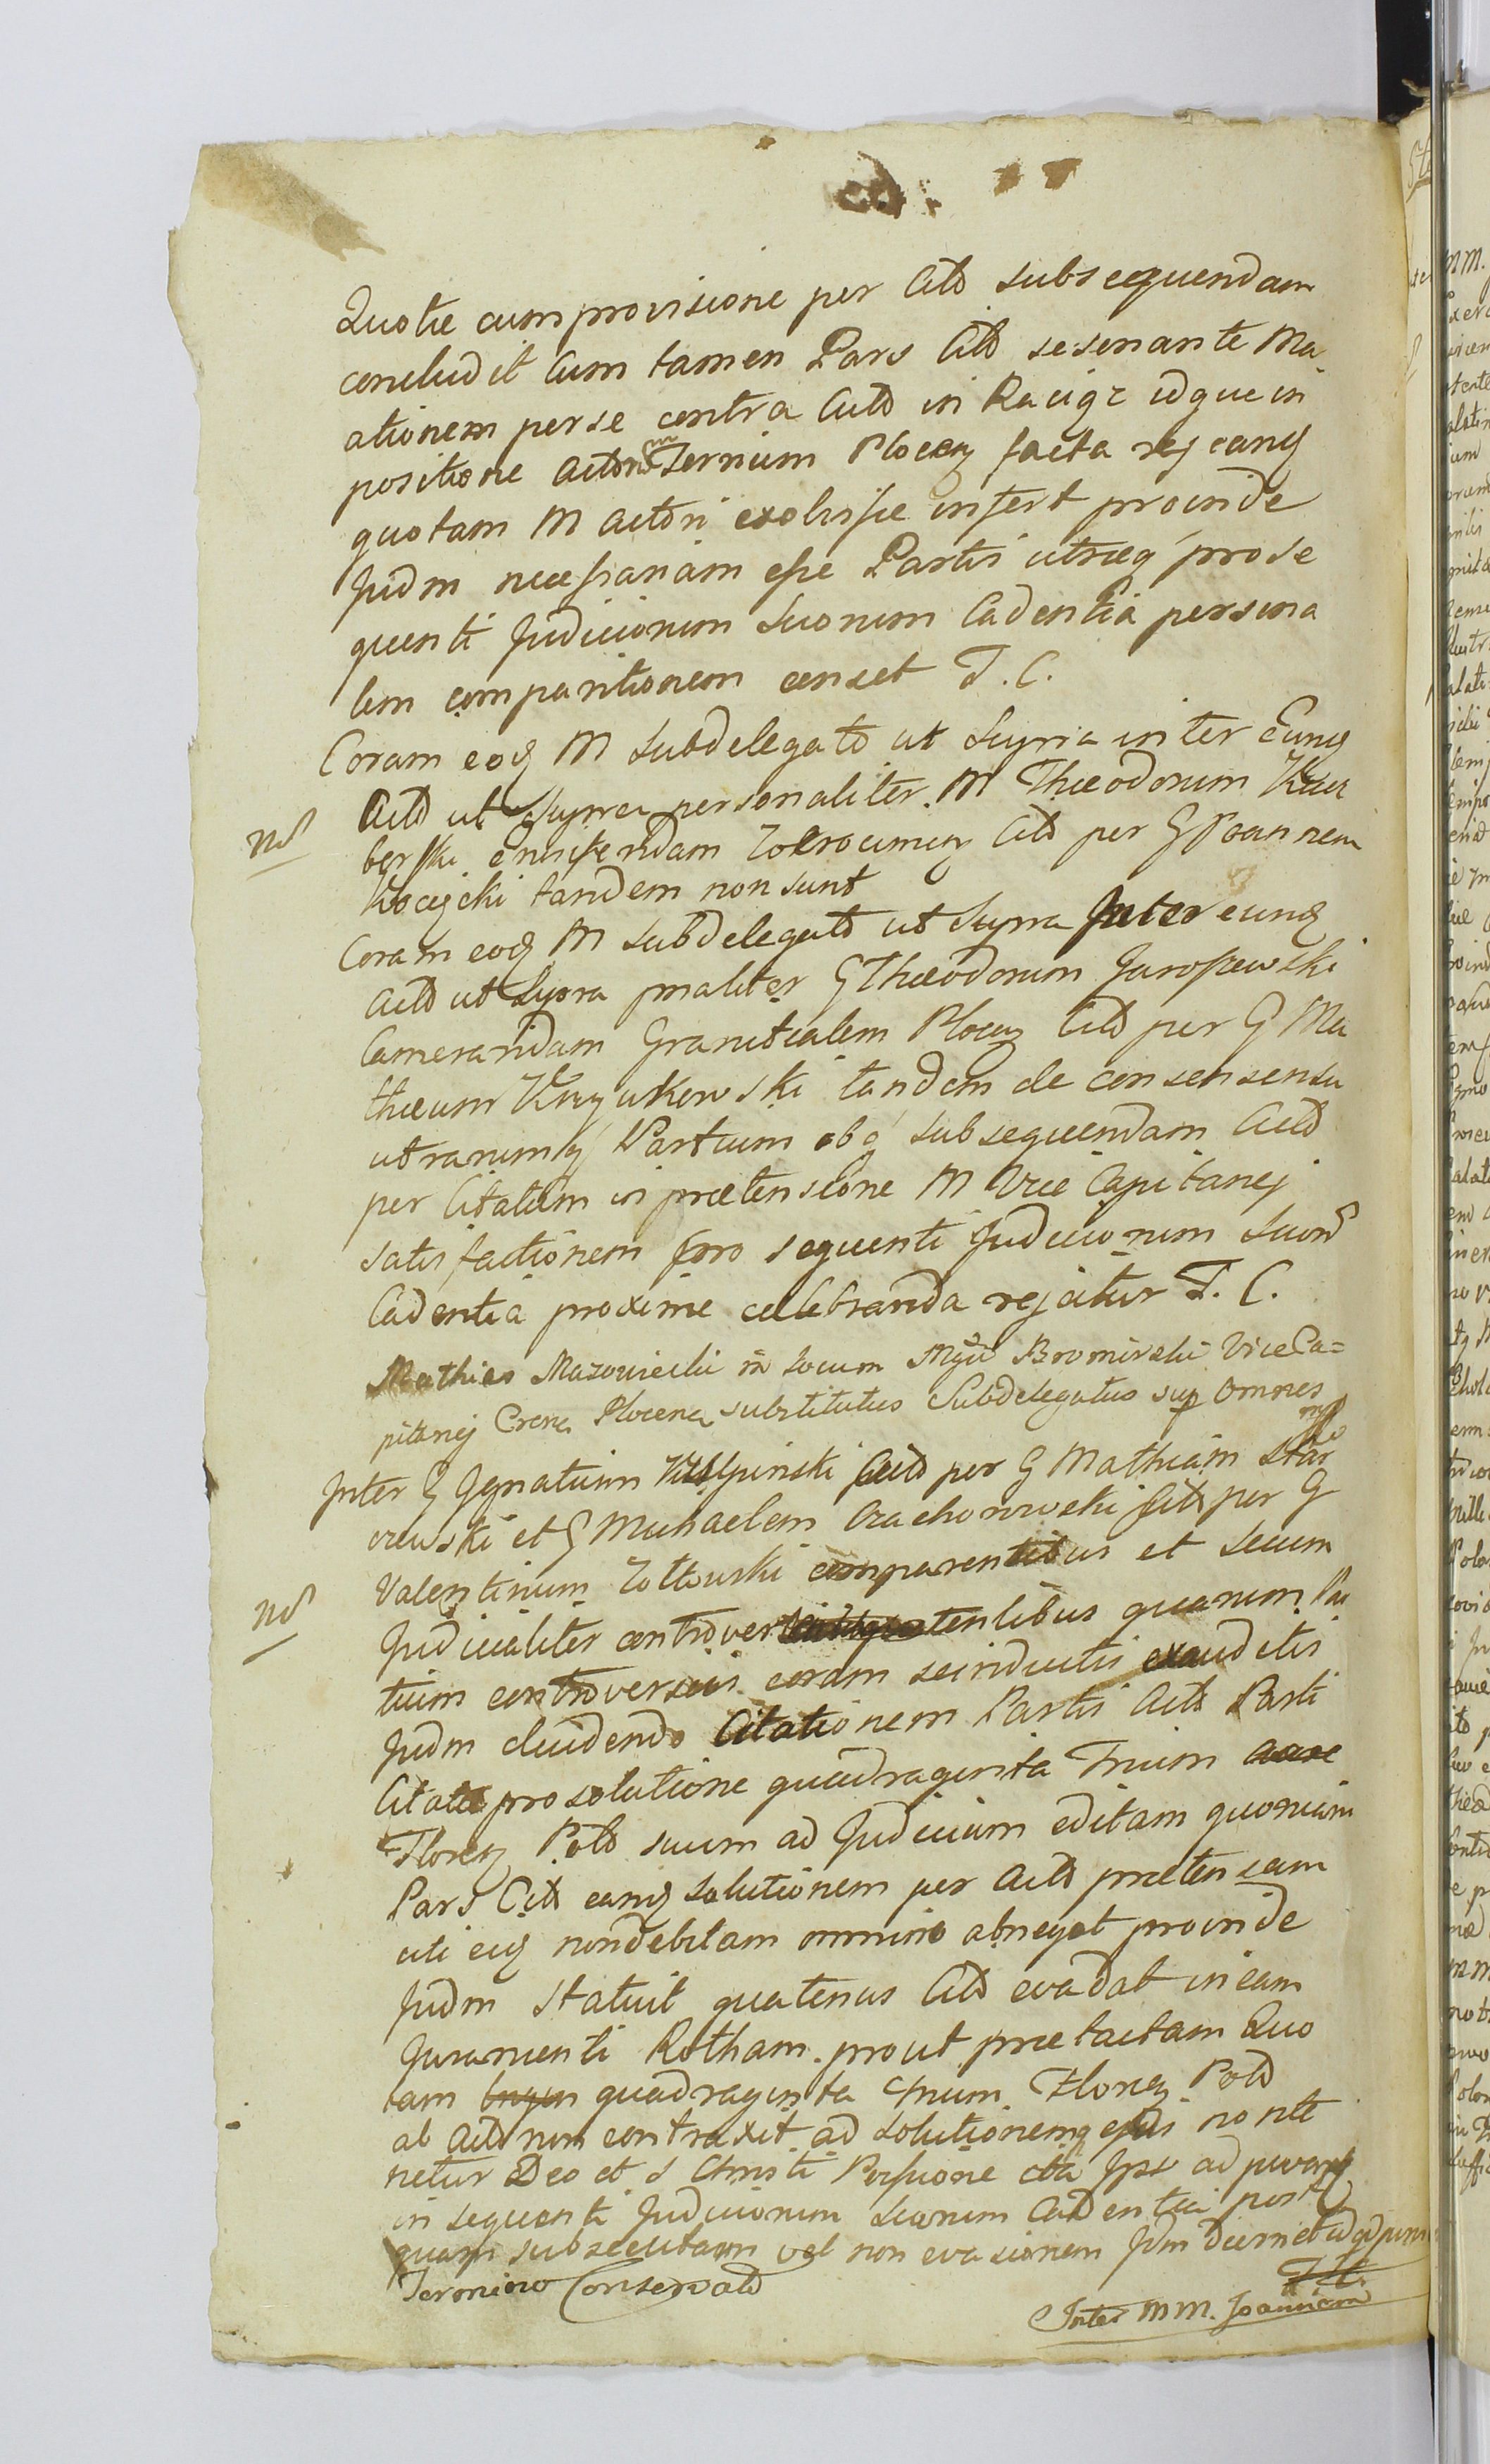 Quotæ cum provisione per Citt subsequendam
concludit Cum tamen Pars Citt se senante Ma
ationem per se contra Actt in Raciąż idque in
positione Terrium Plocen facta
quotam M actori exolvisse infert proinde
Judm necessariam esse Partis utræq prose
quenti Judiciorum Suorum Cadentia persona
lem comparitionem censet T. C.
Coram eoq M Subdelegato ut Supra inter Eunq
Actt ut Supra personaliter M Theodorum
nd
berski Ensiferidam Zakrocimen Citt per G Joannem
tandem non sunt
Coram eoq M Subdelegato ut Supra Inter eunq
Actt ut Supra pnaliter G Theodorum Jaroszewski
Camerandam Granitialem Plocen Citt per G Ma
theum tandem de consensensu
utrarumq Partium ob subsequendam Actt
per Citatum in prætensione M Vice Capitanej
satisfactionem pro sequenti Judiciorum Suor
Cadentia proxime celebranda rejcitur T. C.
Mathias Mazowiecki in locum Mgci Bromirski Vice Ca=
pitanej Crens Plocens substitutus Subdelegatus sup omnes
mpp
Inter G Ignatium Actt per G Mathiam Star
ozewski et G Michaelem Crachonowski Citt per G
Valentinum Zoltowski comparentibus et secum
nd
Judicialiter controvertentibus quarum Par
tium controversiis coram se inductis exauditis
Judm eluidendo Citationem Partis Actt Parti
Citatæ pro solutione quadraginta Trium
Floren Polo suum ad Judicium editam quoniam
Pars Citt eanq solutionem per Actt prætensam
uti eiq non debitam omnino abnegat proinde
Judm Statuit quatenus Citt evadat in eam
Juramenti Rotham prout prætactam Quo
tam quadraginta trium Floren Polo
ab Actt non contraxit ad solutionemq ejus non te
netur Deo et S Christi Passione ita Ipse adjuvant
in sequenti Judiciorum Suorum Cadentia post
quam subsecutam vel non evasionem Jdm decernet
Termino Conservato
Inter MM. Joannem